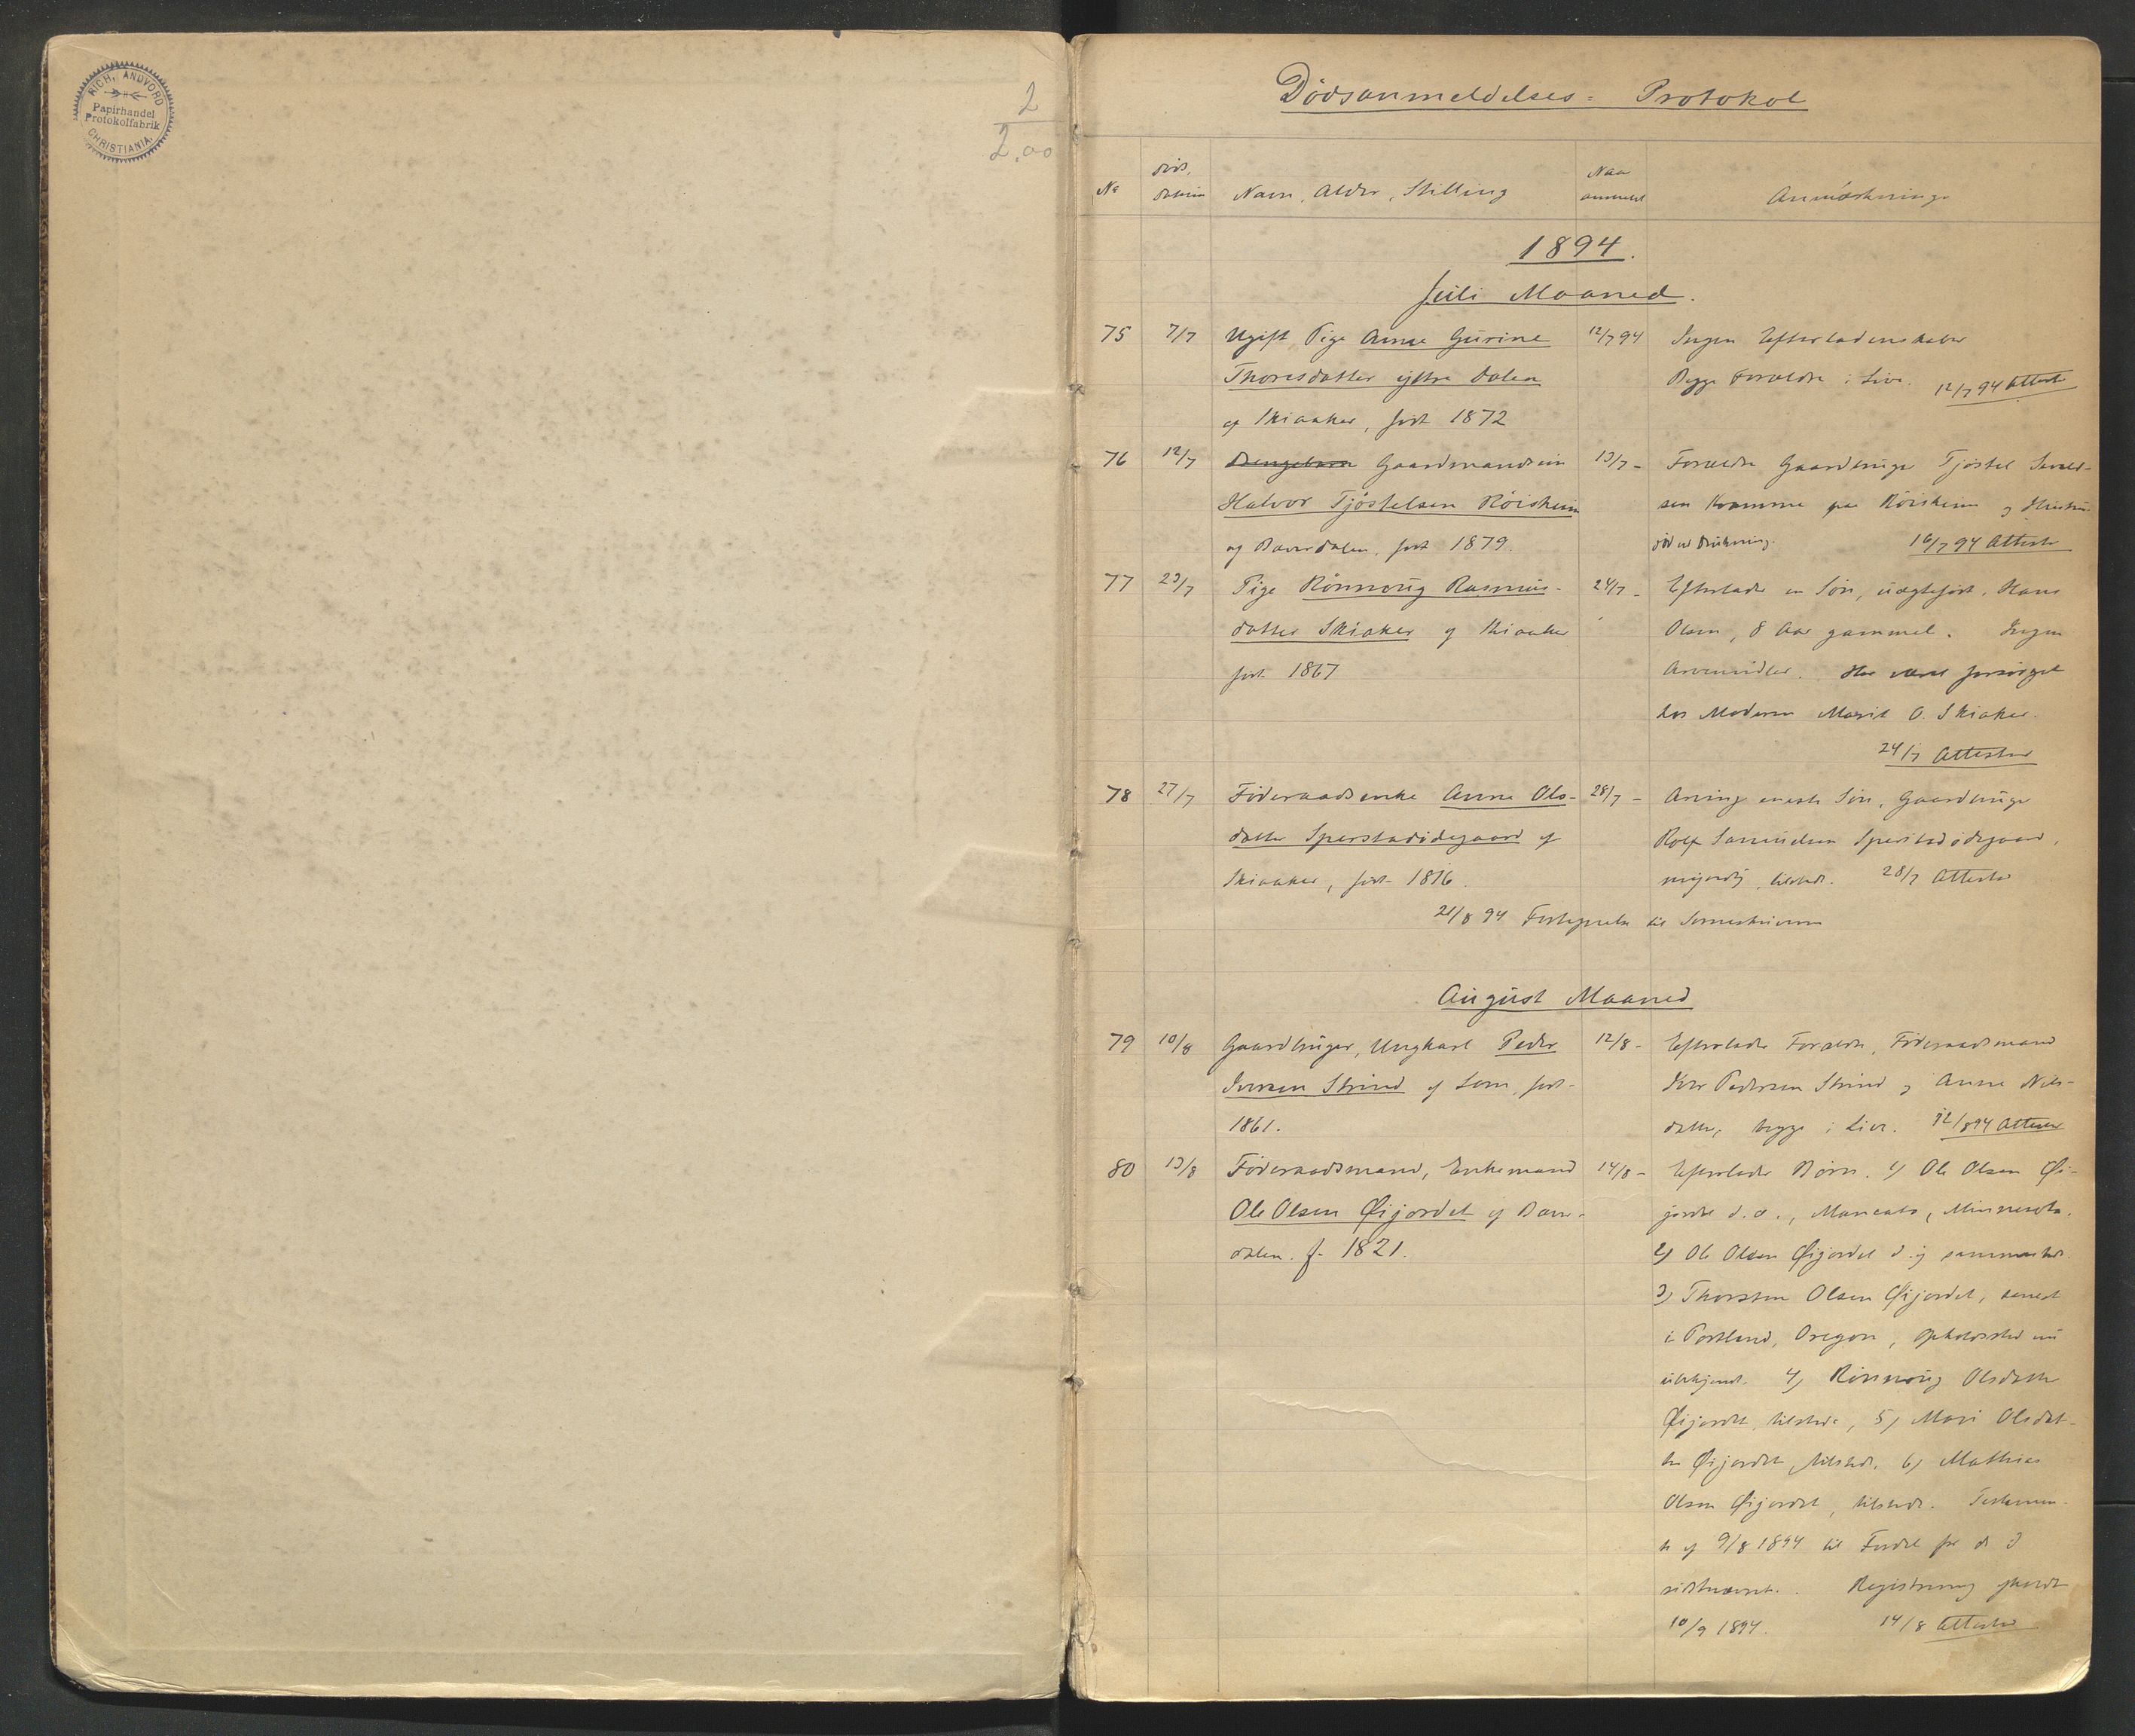 RICH. ANDVORD
Papirhandel
Protokolfabrik
CHRISTIANIA.
2
2.00
Dødsanmeldelses- Protokol
No
Døds
datum
Navn, Alder, Stilling
Naar
anmeldt
Anmærkninger
1894.
Juli Maaned.
75 7/7 Ugift Pige Anne Gurine 12/7 94 Ingen Efterladenskaber
Thoresdatter ytre Dalen Begge Forældre i Live. 12/7 94 Attest
af Skiaaker, født 1872
76 12/7 Gaardmandssøn 13/7 - Forældre Gaardbruger Tjøstel
Halvor Tjøstelsen Røisheim sen Kramme paa Røisheim og Hustru
af Bæverdalen, født 1879. død ved Drukning. 16/7 94 Attest
77 23/7 Pige Rønnoug Rasmus- 24/7 - Efterlader en Søn, uægtefødt, Hans
datter Skiaker af Skiaaker Olsen, 8 Aar gammel. Ingen
født 1867 Arvemidler. Har været forsørget
hos Moderen Marit O. Skiaker.
24/7 Attest
78 27/7 Føderaadsenke Anne Ols- 28/7 - Arving eneste Søn, Gaardbruger
datter Sperstadødegaard af Rolf Samuelsen Sperstadødegaard,
Skiaaker, født 1816. myndig, tilstede. 28/7 Attest
21/8 94 til Sorenskriveren
August Maaned
79 10/8 Gaardbruger, Ungkarl Peder 12/8 - Efterlader Forældre, Føderaadsmand
Iversen Strind af Lom, født Iver Pedersen Strind og Anne Nils-
1861. datter, begge i Live. 12/8 94 Attest
80 13/8 Føderaadsmand, Enkemand 14/8 - Efterlader Børn. 1) Ole Olsen Øi-
Ole Olsen Øijordet af Bæver- jordet d. æ., Mancato, Minnesota.
dalen. f. 1821. 2) Ole Olsen Øijordet d. y sammesteds.
3) Thorsten Olsen Øijordet, senest
i Portland, Oregon, Opholdssted nu
ubekjendt. 4) Rønnoug Olsdatter
Øijordet, tilstede, 5) Mari Olsdat-
ter Øijordet, tilstede, 6) Mathias
Olsen Øijordet, tilstede. Testamen-
te af 9/8 1894 til Fordel for de 3
sidstnævnte. Registrering afholdt
10/9 1894. 14/8 Attest